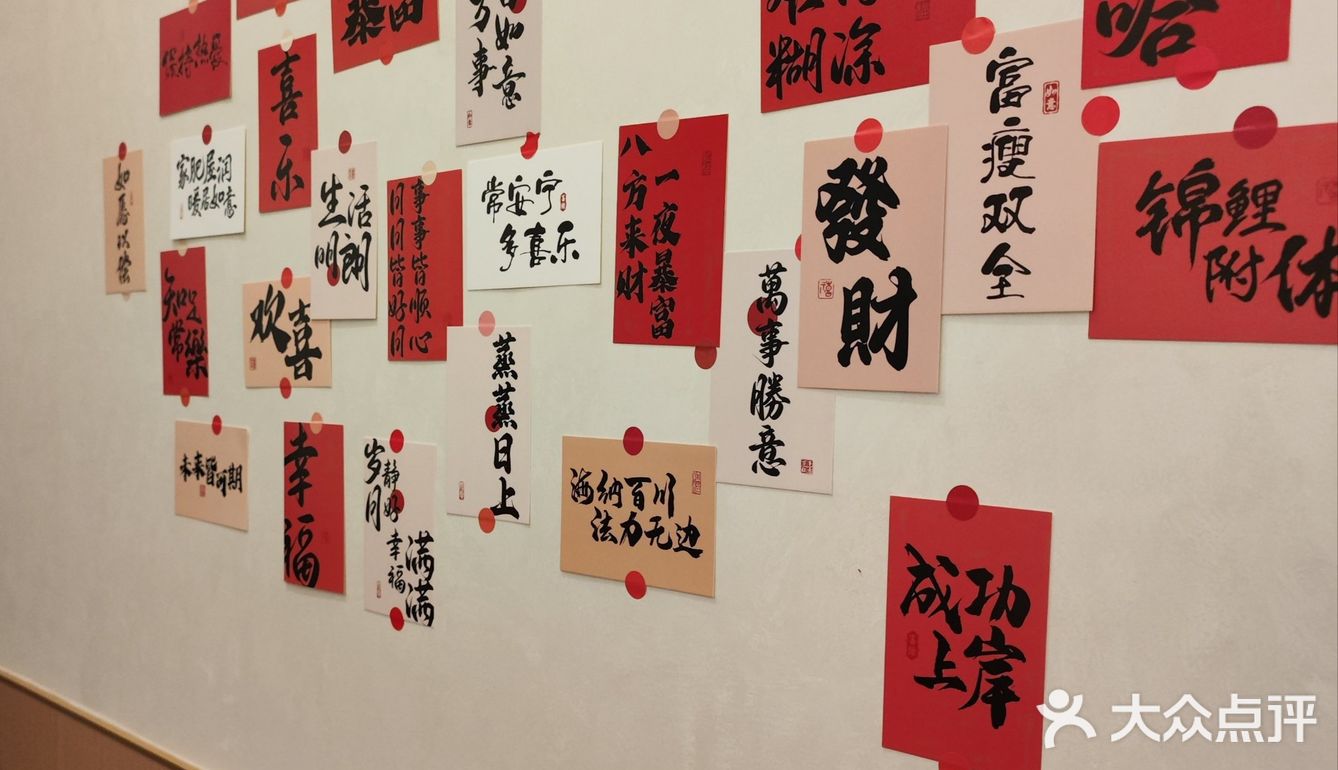 保持热爱
喜乐
暴富
万事如意
糊涂
富瘦双全
如意
哈
如愿以偿
家肥屋润
暖居如意
生活
明朗
事事皆顺心
日日皆好日
常安宁
多喜乐
一夜暴富
八方来财
發財
锦鲤
附体
知足
常樂
欢喜
蒸蒸日上
萬事勝意
未来皆可期
幸福
岁月静好
幸福满满
海纳百川
法力无边
成功
上岸
大众点评